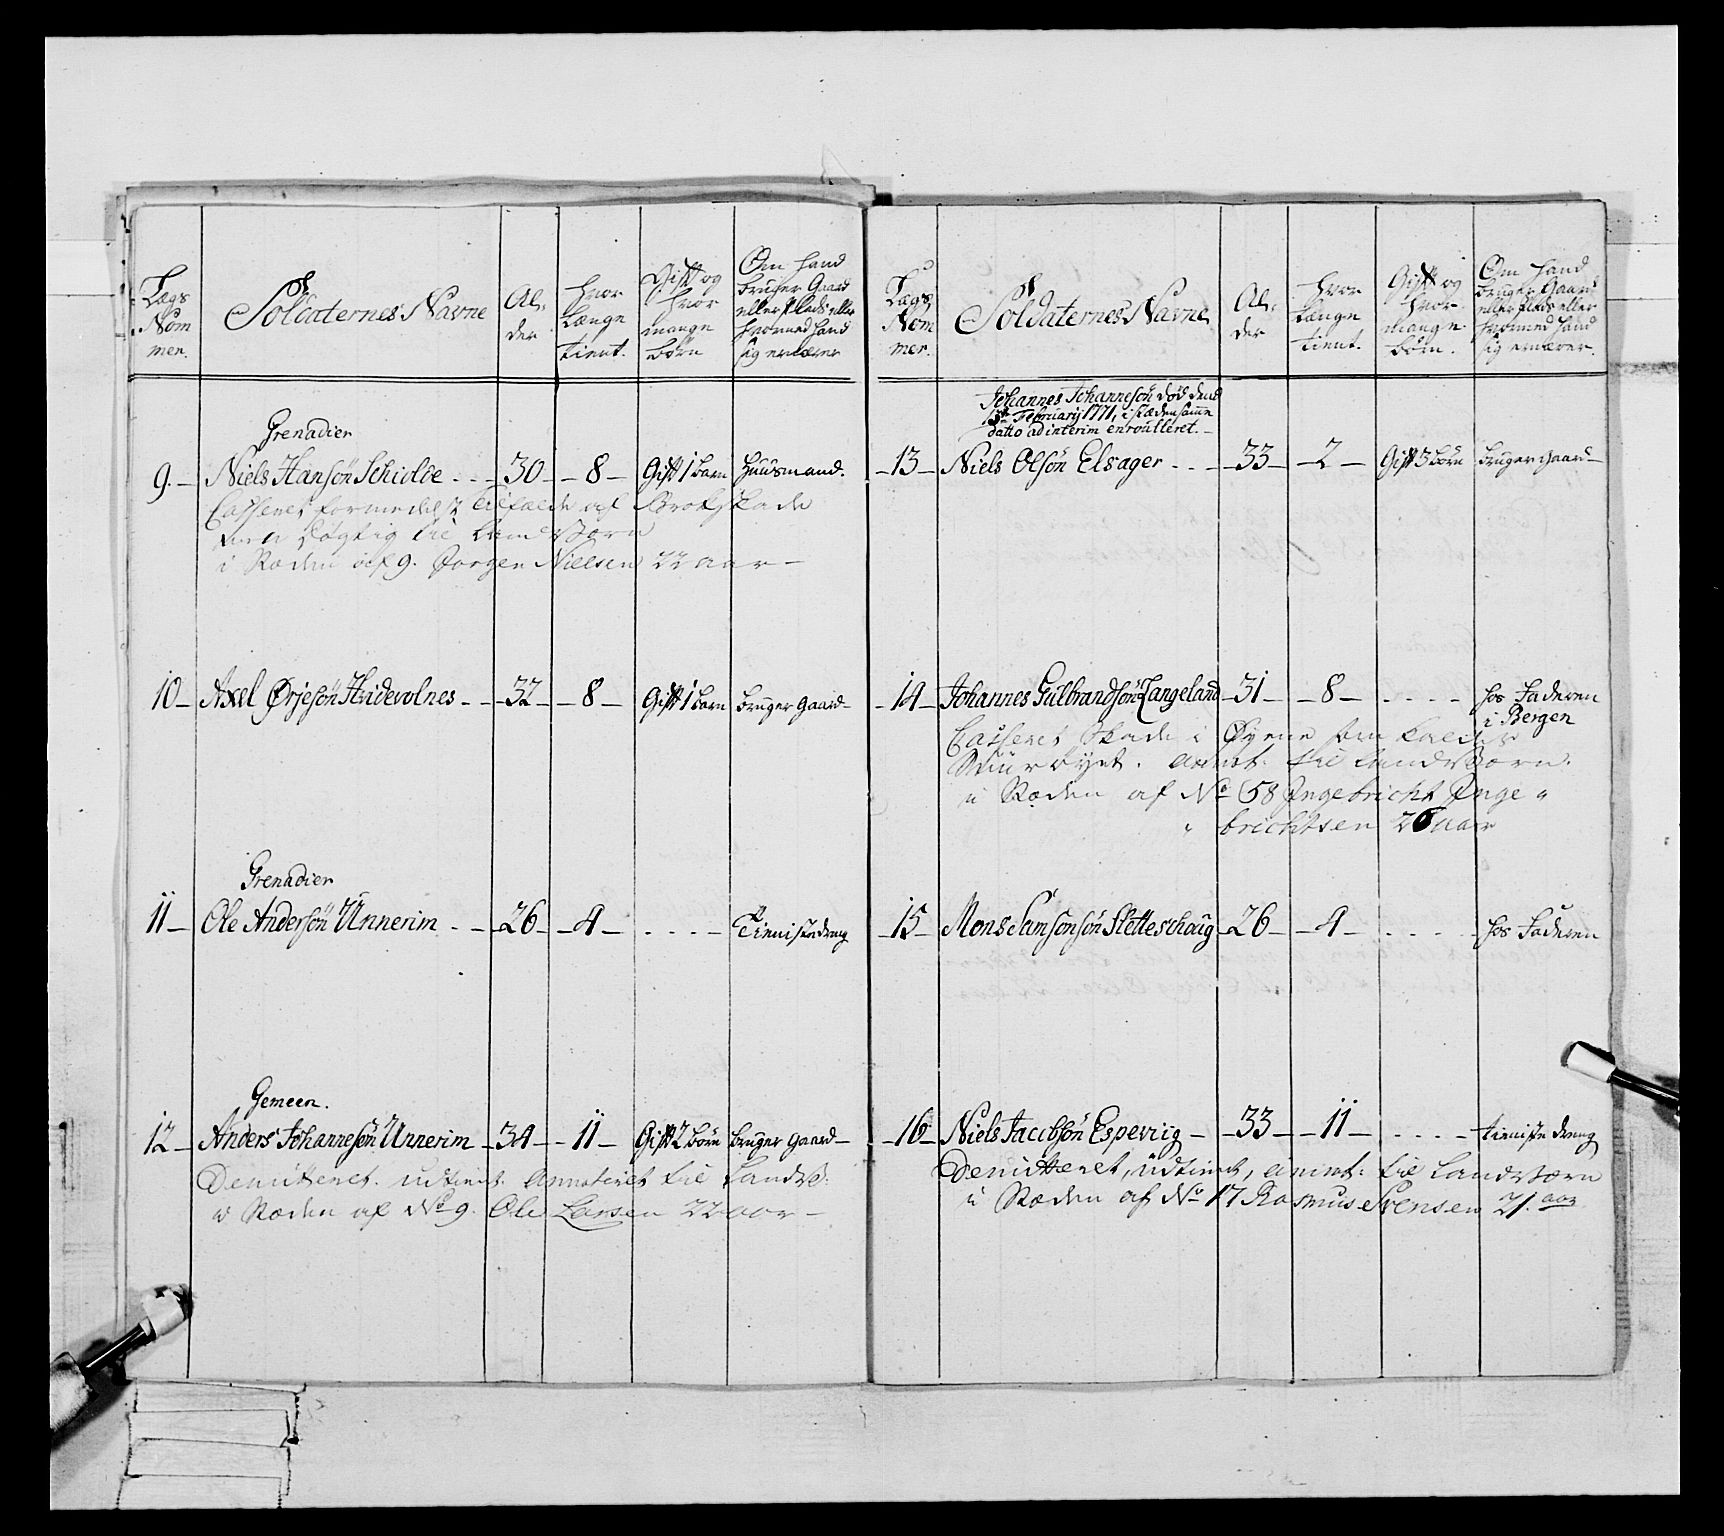 Lægs Nom mer.
Soldaternes Navne
Al, der
hvor Længe tient.
Gift og hvor mange børn
Om hand bruger Gaard eller Plads eller hvormed hand sig ernærer
Grenadier
9. — Niels Hansøn Schiolde - - - 30 - - 8 - Gift 1 barn Huusmand.
Casseret formedelst tilfælde af Brokskade
døgtig til Land Værn
i Stæden af 9. Jørgen Nielsen 22 aar —
10 — Axel Ørjesøn Hvidevolnes - - - 32 - - 8 - Gift 1 barn bruger gaard
Grenadier
11 — Ole Andersøn Unnerim - - - 26 - - 4 - - - - - Tienistedreng
Gemeen.
12 — Anders Johannesøn Unnerim - 34 - - 11 - Gift 2 børn bruger gaard —
Demitteret. udtient. Annoteret til Landv:
i Stæden af No 9. Ole Larsen 22 aar —
Lægs Nom mer.
Soldaternes Navne
Al, der
hvor længe tient.
Gift og hvor mange børn.
Om hand bruger Gaard eller Plads eller hvormed hand sig ernærer.
Johannes Johannesøn død dend
Februarij 1771, i stæden samme
datto ad interim enroulleret. —
- 13 - Niels Olsøn Elsager - - - 33 - - 2 - Gift 3 børn bruger gaard —
- 14 - Johannes Gulbrandsøn Langeland - 31 - - 8 - - - - - hos Faderen
i Bergen
Casseret Skade i Øyene kaldes
annot: til Landværn.
i Stæden af No 58 Ingebricht Inge "
" brichtsen 26 aar
- 15 - Mons Samsonsøn Sletteschoug - 26 - - 4 - - - - - hos Faderen
- 16 - Niels Jacobsøn Espeviig - - 33 - - 11 - - - - - tieniste dreng
Demitteret, udtient, annot: til Landværn
i Stæden af No 17 Rasmus Svensen 21. aar